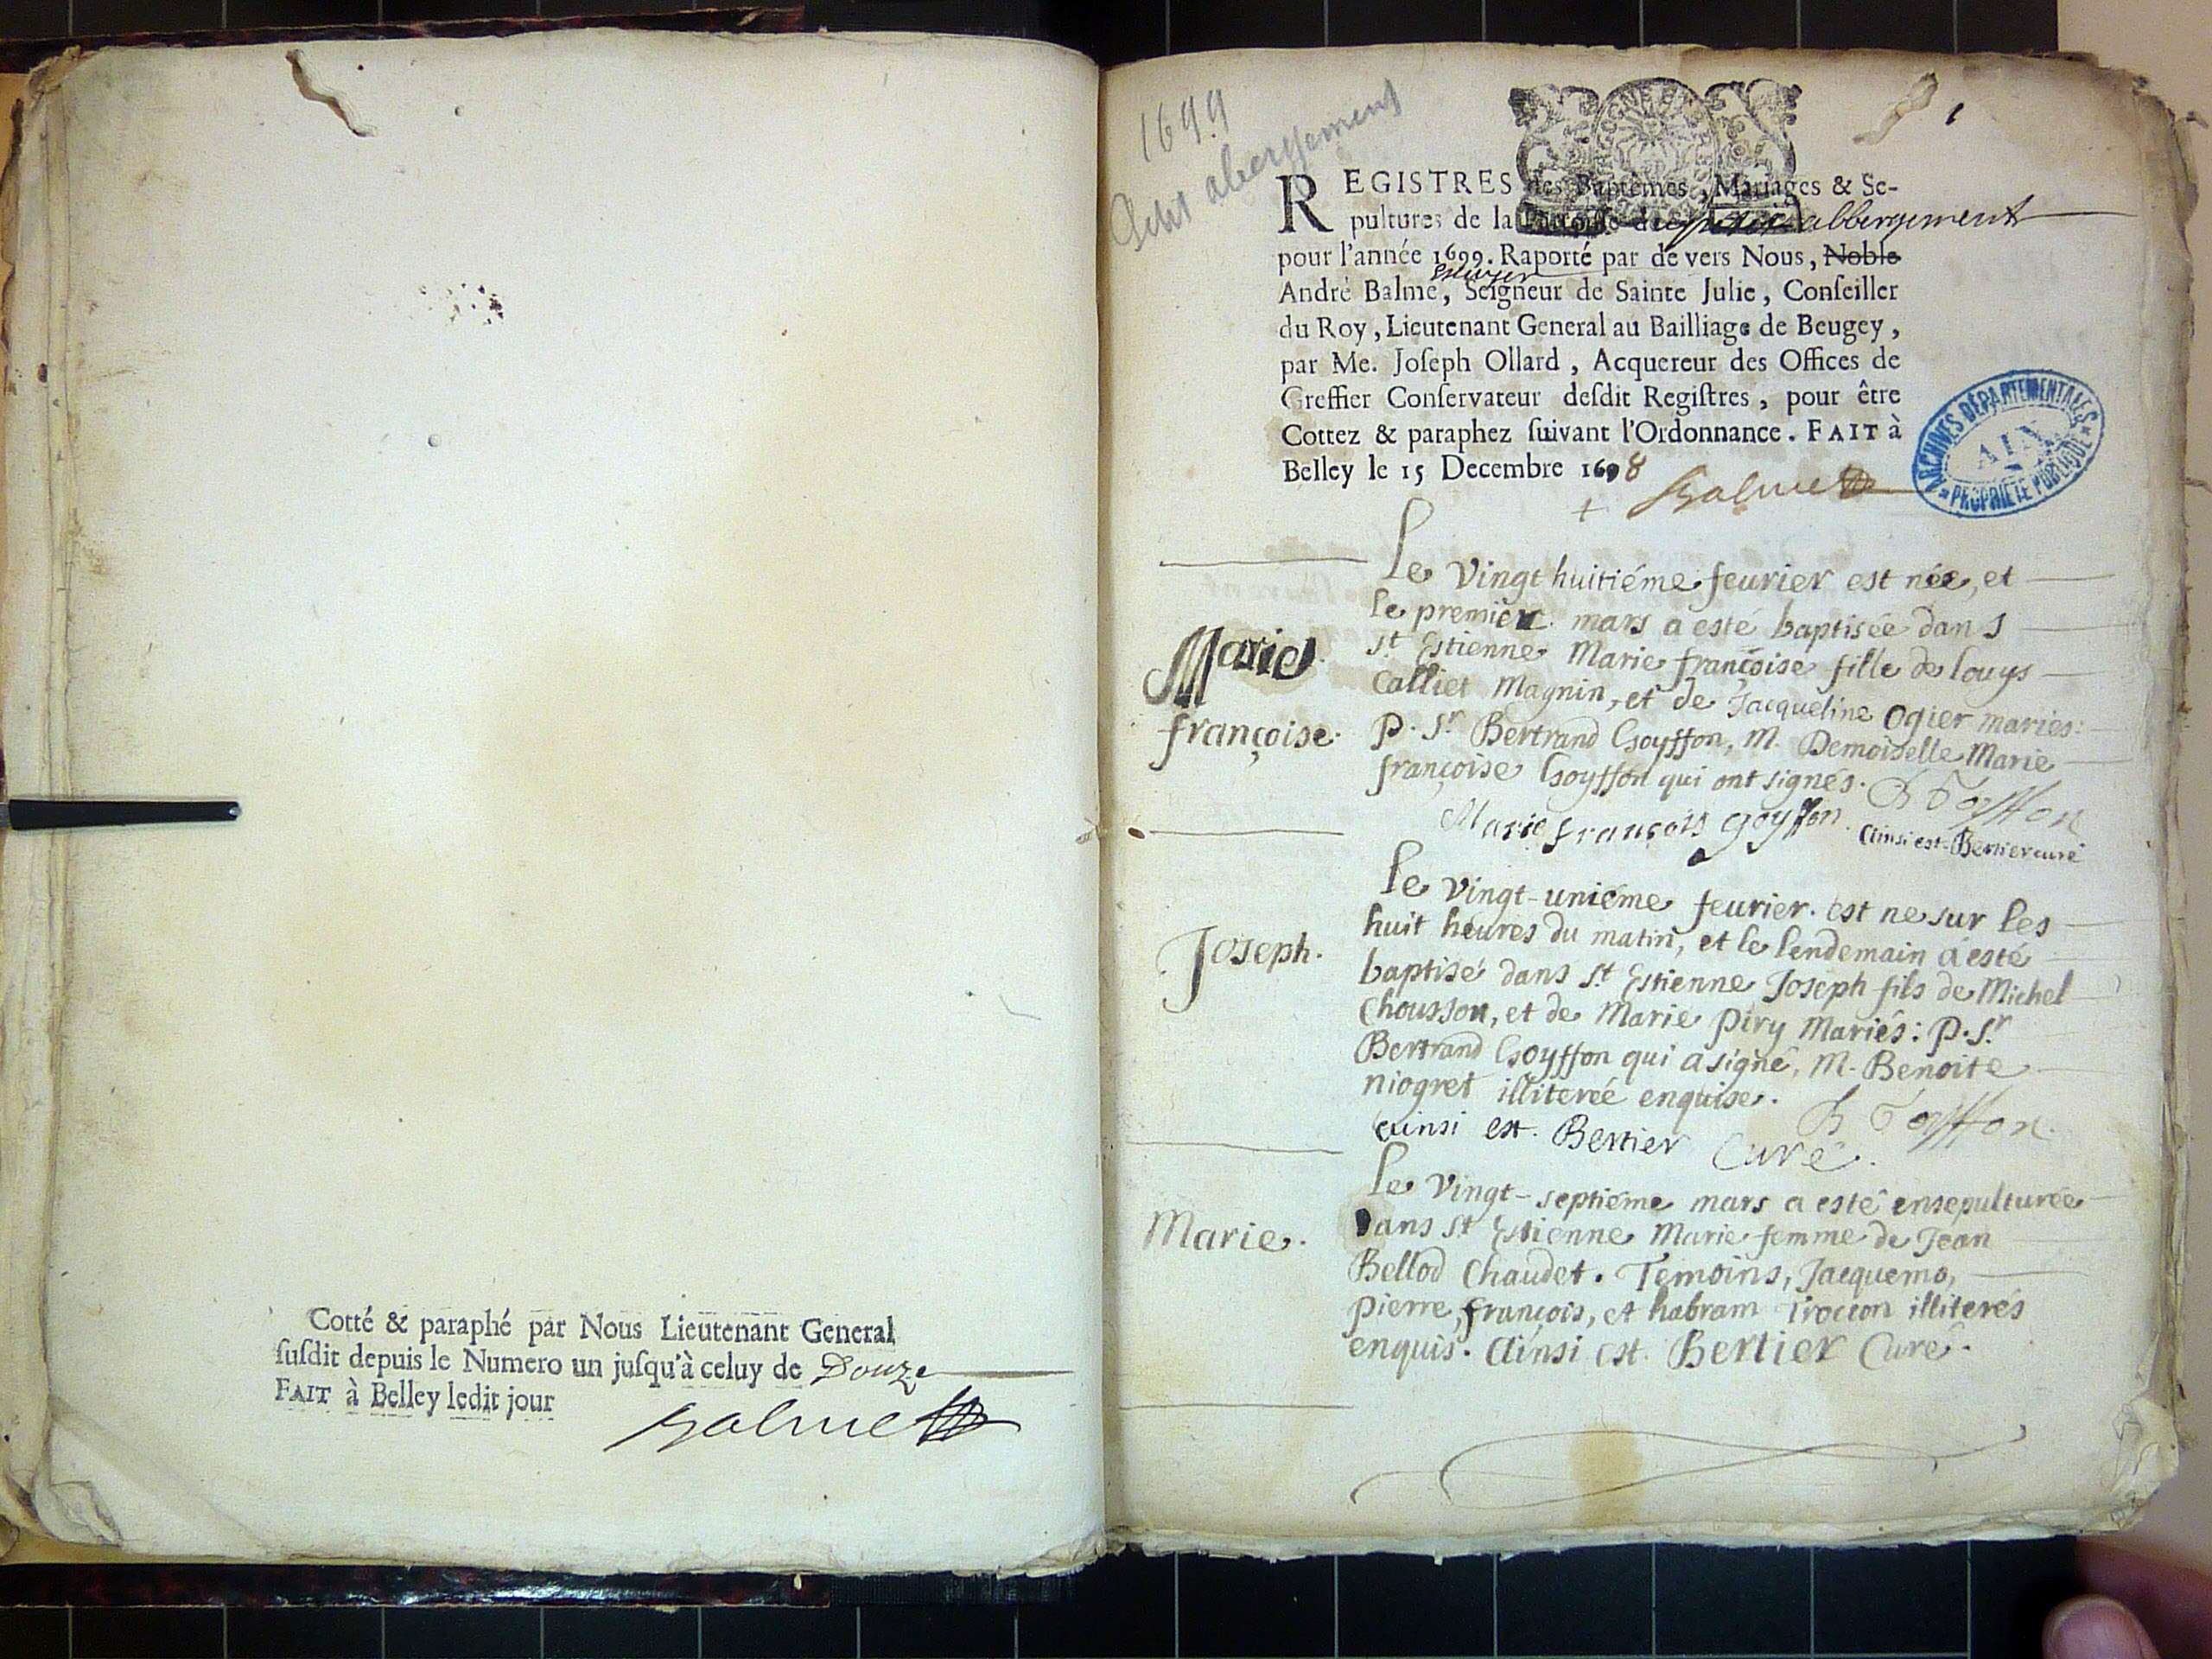 Cotté & paraphé par Nous Lieutenant General
ſuſdit depuis le Numero un juſqu'à celuy de Douze
FAIT à Belley ledit jour
Balme
1699
petit abergement
1
REGISTRES des Baptêmes, Mariages & Se-
pultures de la Parroiſſe de petit abbergement
pour l'année 1699. Raporté par de vers Nous, Noble
Escuyer
André Balme, Seigneur de Sainte Julie, Conſeiller
du Roy, Lieutenant General au Bailliage de Beugey,
par Me. Joſeph Ollard, Acquereur des Offices de
Greffier Conſervateur deſdit Regiſtres, pour être
Cottez & paraphez ſuivant l'Ordonnance. FAIT à
Belley le 15 Decembre 1698
Balme
ARCHIVES DÉPARTEMENTALES
AIN
PROPRIÉTÉ PUBLIQUE
Le vingt huitiéme feurier est née, et
le premier mars a esté baptisée dans
st Estienne Marie françoise fille de louys
Calliet Magnin, et de Jacqueline Ogier mariés:
p. Sr Bertrand Goyffon, M. Demoiselle Marie
françoise Goyffon qui ont signés. B Goyffon
Marie françoise.
Marie françois goyffon. Ainsi est. Bertier curé
Le vingt-uniéme feurier est ne sur les
huit heures du matin, et le lendemain a esté
Joseph.
baptisé dans st Estienne Joseph fils de Michel
Chousson, et de Marie piry Mariés: p. Sr
Bertrand Goyffon qui a signé, M. Benoite
niogret illiterée enquise. B Goyffon
ainsi est. Bertier Curé.
Le vingt-septiéme mars a esté ensepulturée
Marie.
Dans st Estienne Marie femme de Jean
Bellod Chaudet. Temoins, Jacquemo,
pierre, françois, et habram Trocion illiterés
enquis. Ainsi est. Bertier Curé.